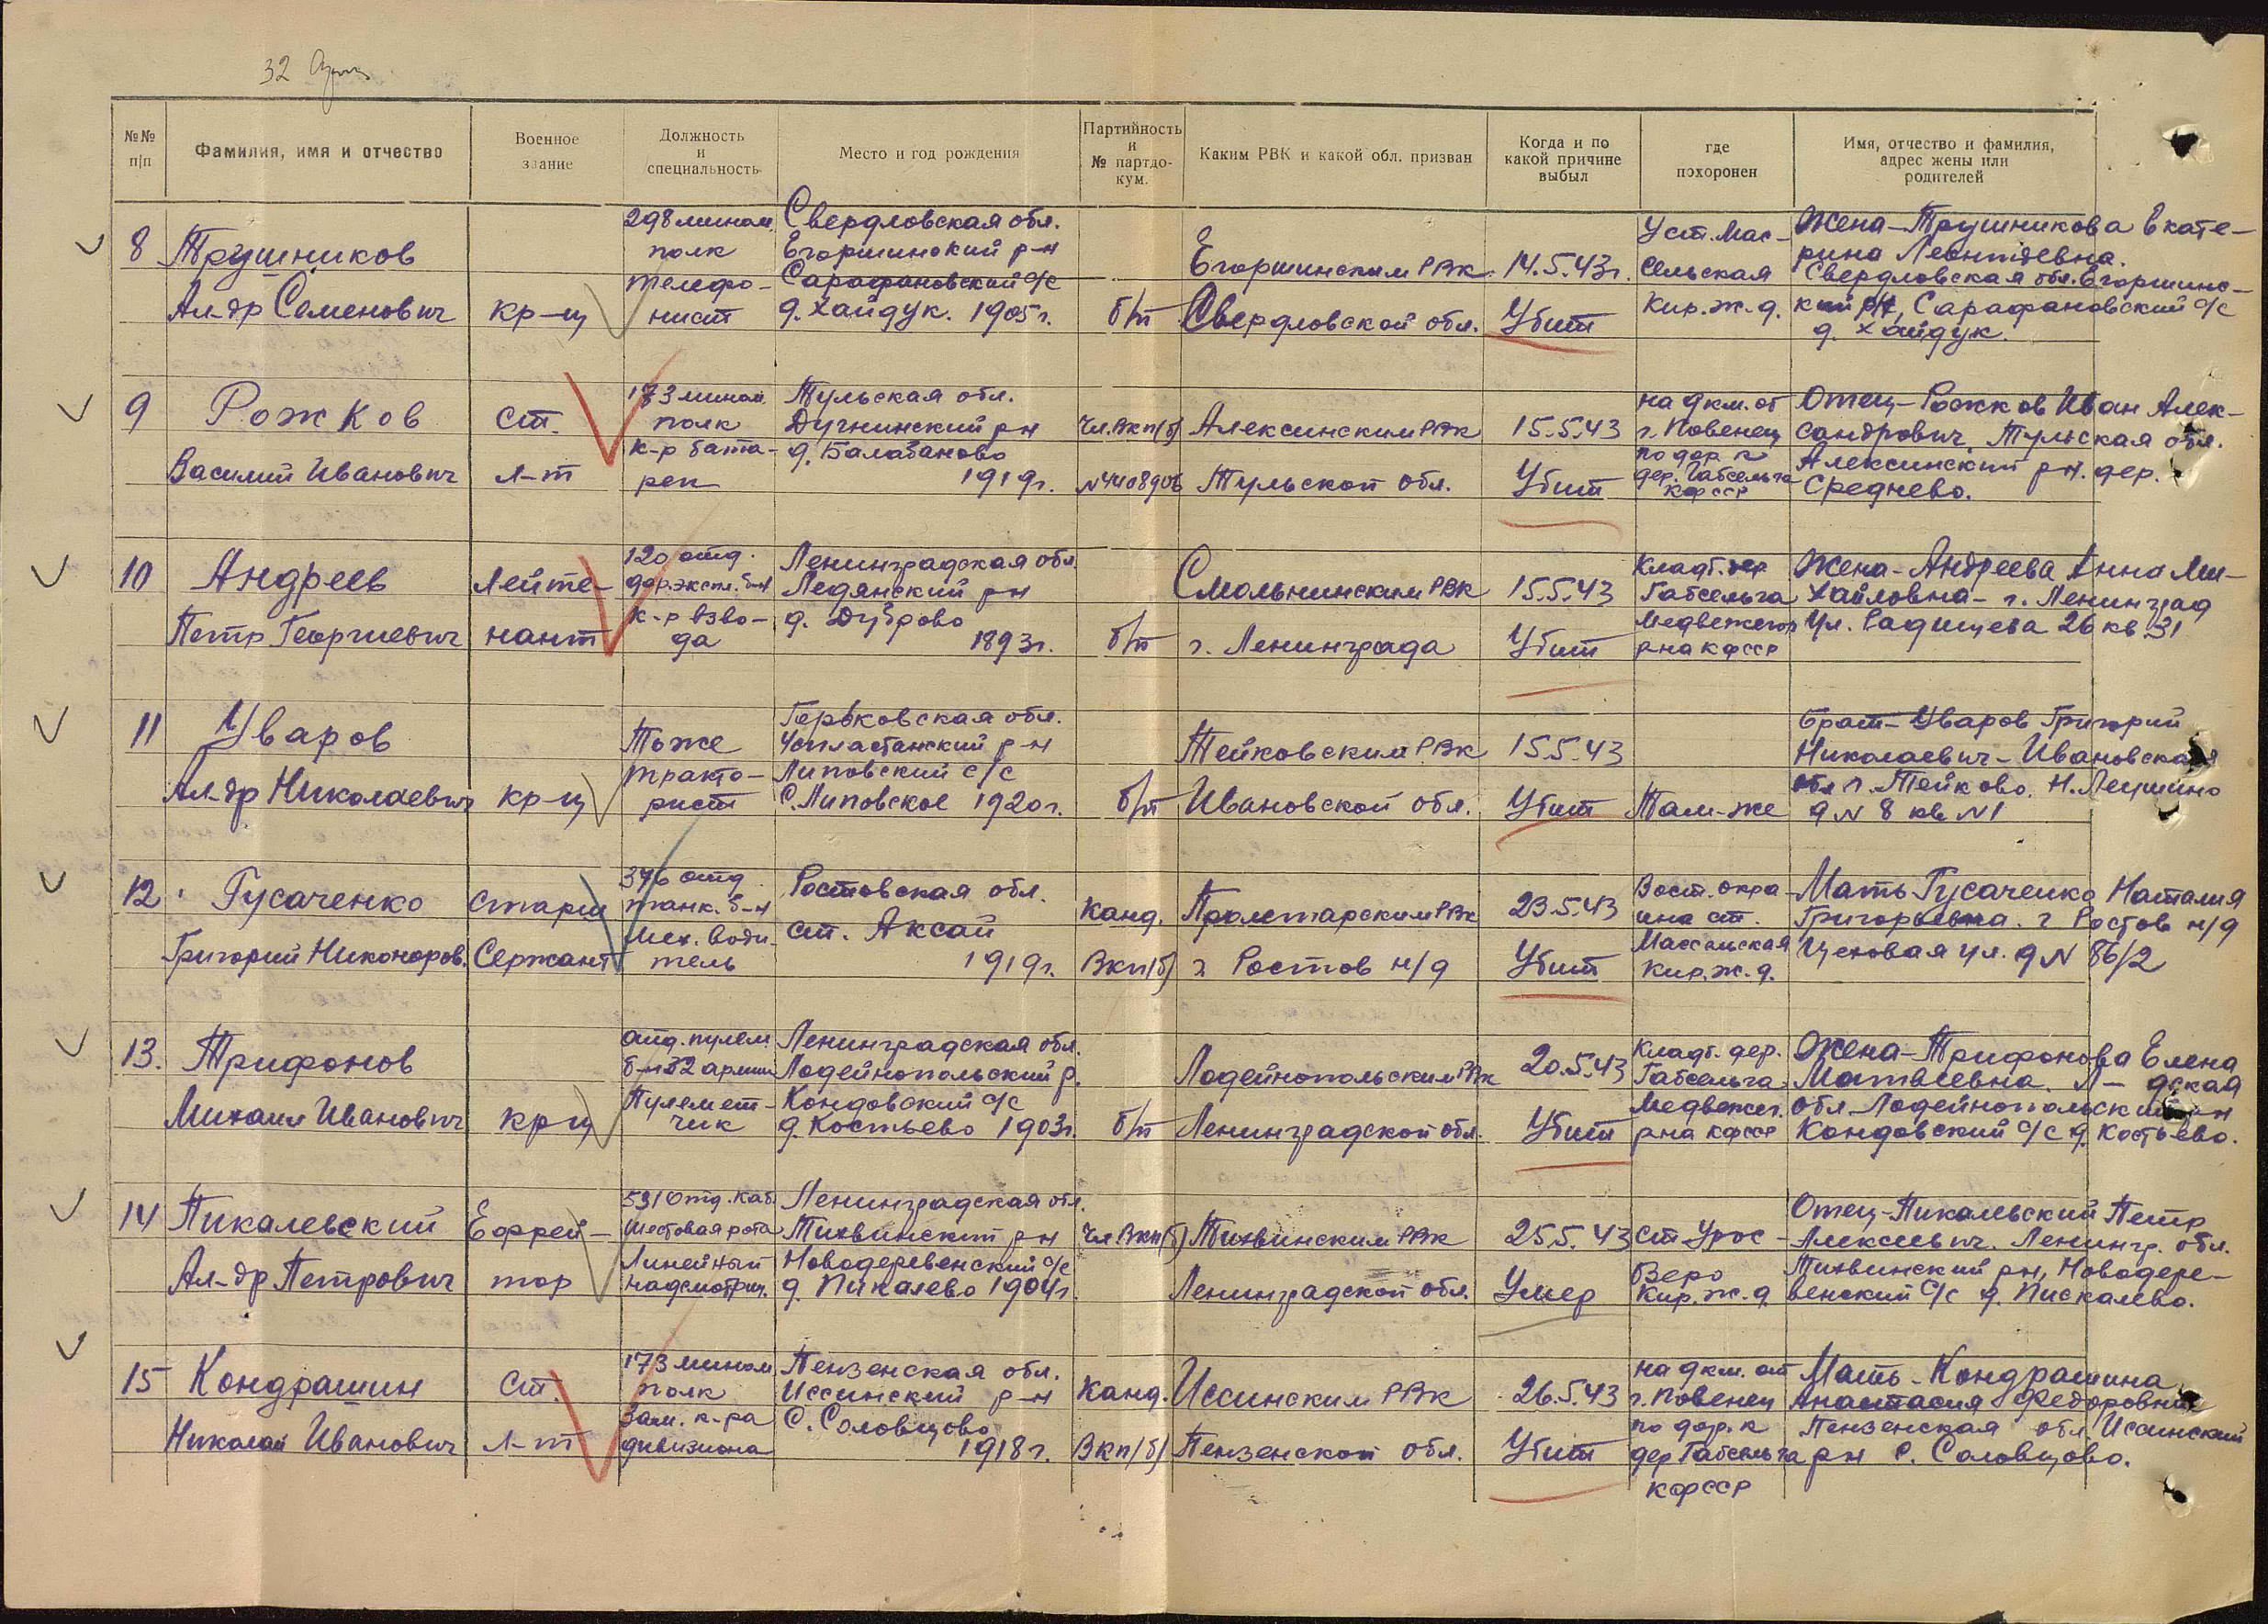 32
№№ п/п
Фамилия, имя и отчество
Военное звание
Должность и специальность
Место и год рождения
Партийность и № партдокум.
Каким РВК и какой обл. призван
Когда и по какой причине выбыл
где похоронен
Имя, отчество и фамилия, адрес жены или родителей
8
Трушников
Ал-др Семенович
кр-ц
298 мином.
полк
телефо-
нист
Свердловская обл.
Егоршинский р-н
Сарафановский с/с
д. Хайдук. 1905г.
б/п
Егоршинским РВк
Свердловской обл.
14.5.43г.
Убит
Уст. Мас-
сельская
Кир. ж. д.
Жена-Трушникова Екате-
рина Леонтьевна.
Свердловская обл. Егоршинс-
кий р/н, Сарафановский с/с
д. Хайдук.
9
Рожков
Василий Иванович
Ст.
л-т
173 мином.
полк
к-р бата-
реи
Тульская обл.
Дугнинский рн
д. Балабаново
1919г.
Чл. Вкп(б)
N4408906
Алексинским РВк
Тульской обл.
15.5.43
Убит
на 9 км. от
г. Повенец
по дор. к
дер. Габсельга
кфсср
Отец-Рожков Иван Алек-
сандрович Тульская обл.
Алексинский рн. дер.
Среднево.
10
Андреев
Петр Георгиевич
Лейте-
нант
120 отд.
дор. экспл. б-н
к-р взво-
да
Ленинградская обл.
Ледянский рн
д. Дуброво
1893г.
б/п
Смольнинским РВк
г. Ленинграда
15.5.43
Убит
Кладб. дер
Габсельга
Медвежегор
р-на кфсср
Жена-Андреева Анна Ми-
хайловна-г. Ленинград
Ул. Радищева 26 кв. 31
11
Уваров
Ал-др Николаевич
кр-ц
Тоже
тракто-
рист
Горьковская обл.
р-н
Липовский с/с
С. Липовское 1920г.
б/п
Тейковским РВк
Ивановской обл.
15.5.43
Убит
Там-же
брат-Уваров Григорий
Николаевич-Ивановская
обл г. Тейково.
д N 8 кв N1
12
Гусаченко
Григорий Никоноров.
Старш
Сержант
376 отд.
танк. б-н
Мех. води-
тель
Ростовская обл.
ст. Аксай
1919г.
Канд.
Вкп/б/
Пролетарским РВк
г Ростов н/д
23.5.43
Убит
Вост. окра-
ина ст.
Массельская
Кир. ж. д.
Мать Гусаченко Наталия
Григорьевна. г Ростов н/д
Цеховая ул. д N 86/2
13.
Трифонов
Михаил Иванович
кр ц
Отд. пулем.
б-н 32 армии
Пулемет-
чик
Ленинградская обл.
Лодейнопольский р.
Кондовский с/с
д. Костьево 1903г.
б/п
Лодейнопольским РВк
Ленинградской обл.
20.5.43
Убит
Кладб. дер.
Габсельга
Медвежег.
р-на кфсср
Жена-Трифонова Елена
Матвеевна. Л- дская
обл. Лодейнопольский рн
Кондовский с/с д. Костьево.
14
Пикалевский
Ал-др Петрович
Ефрей-
тор
531 Отд. каб.
шестовая рота
Линейный
надсмотрщ.
Ленинградская обл.
Тихвинский рн
Новодеревенский с/с
д. Пикалево 1904г.
Чл Вкп(б)
Тихвинским РВк
Ленинградской обл.
25.5.43
Умер
ст Урос-
Веро
Кир. ж. д.
Отец-Пикалевский Петр
Алексеевич. Ленингр. обл.
Тихвинский рн, Новодере-
венский с/с д. Пискалево.
15
Кондрашин
Николай Иванович
Ст.
л-т
173 мином
полк
Зам. к-ра
дивизиона
Пензенская обл.
Иссинский р-н
с. Соловцово
1918г.
Канд.
Вкп/б/
Иссинским РВк
Пензенской обл.
26.5.43
Убит
на 9 км. от
г. Повенец
по дор. к
дер Габсельга
кфсср
Мать-Кондрашина
Анастасия Федоровна
Пензенская обл. Иссинский
рн с. Соловцово.